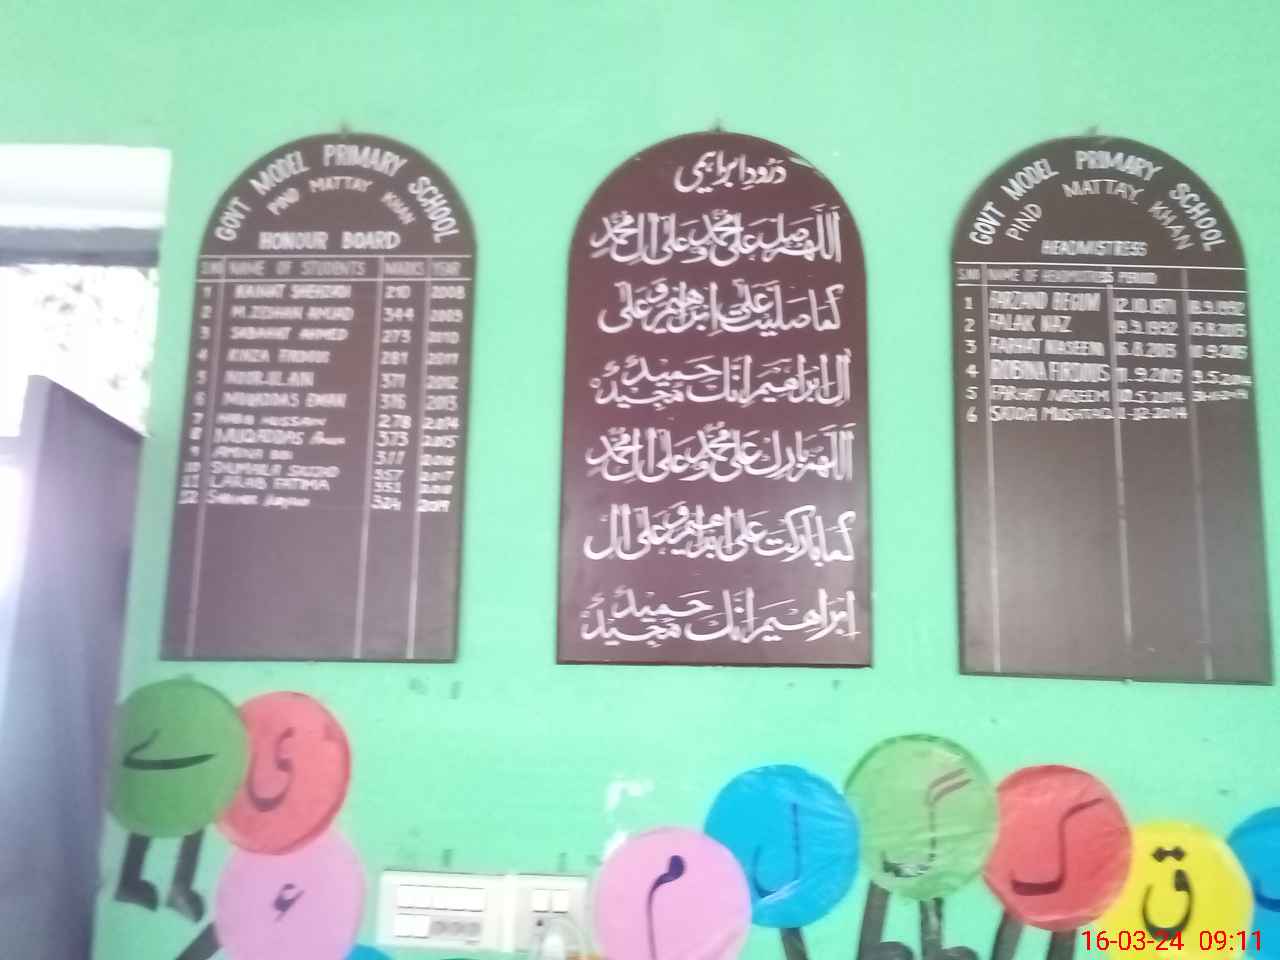 GOVT MODEL PRIMARY SCHOOL
PIND MATTAY KHAN
HONOUR BOARD
S.N NAME OF STUDENTS MARKS YEAR
1 210 2008
2 M.ZESHAN AMJAD 344 2009
3 SABAHAT AHMED 273 2010
4 KINZA FIRDOUS 281 2011
5 NOOR-UL-AIN 371 2012
6 MUQADDAS EMAN 376 2013
7 HUSSAN 278 2014
8 MUQADDAS 373 2015
9 AMNA BIBI 377 2016
10 SHUMAILA SAJJAD 357 2017
11 LARAB FATIMA 351 2018
12 324 2019
درود ابراہیمی
اَللّٰهُمَّ صَلِّ عَلٰى مُحَمَّدٍ وَّ عَلٰى اٰلِ مُحَمَّدٍ
كَمَا صَلَّيْتَ عَلٰى اِبْرَاهِيْمَ وَ عَلٰى
اٰلِ اِبْرَاهِيْمَ اِنَّكَ حَمِيْدٌ مَّجِيْدٌ
اَللّٰهُمَّ بَارِكْ عَلٰى مُحَمَّدٍ وَّ عَلٰى اٰلِ مُحَمَّدٍ
كَمَا بَارَكْتَ عَلٰى اِبْرَاهِيْمَ وَ عَلٰى اٰلِ
اِبْرَاهِيْمَ اِنَّكَ حَمِيْدٌ مَّجِيْدٌ
GOVT MODEL PRIMARY SCHOOL
PIND MATTAY KHAN
HEADMISTRESS
S.N0 NAME OF HEADMISTRESS PERIOD
1 FARZAND BEGUM 12.10.1971 18.9.1992
2 FALAK NAZ 19.9.1992 15.8.2013
3 FARHAT NASEEM 16.8.2013 10.9.2013
4 ROBINA FIRDOUS 11.9.2013 9.5.2014
5 FARHAT NASEEM 10.5.2014
6 SAJDA MUSHTAQ 1-12-2014
ے
ی
ء
م
ل
گ
ک
ق
16-03-24 09:11